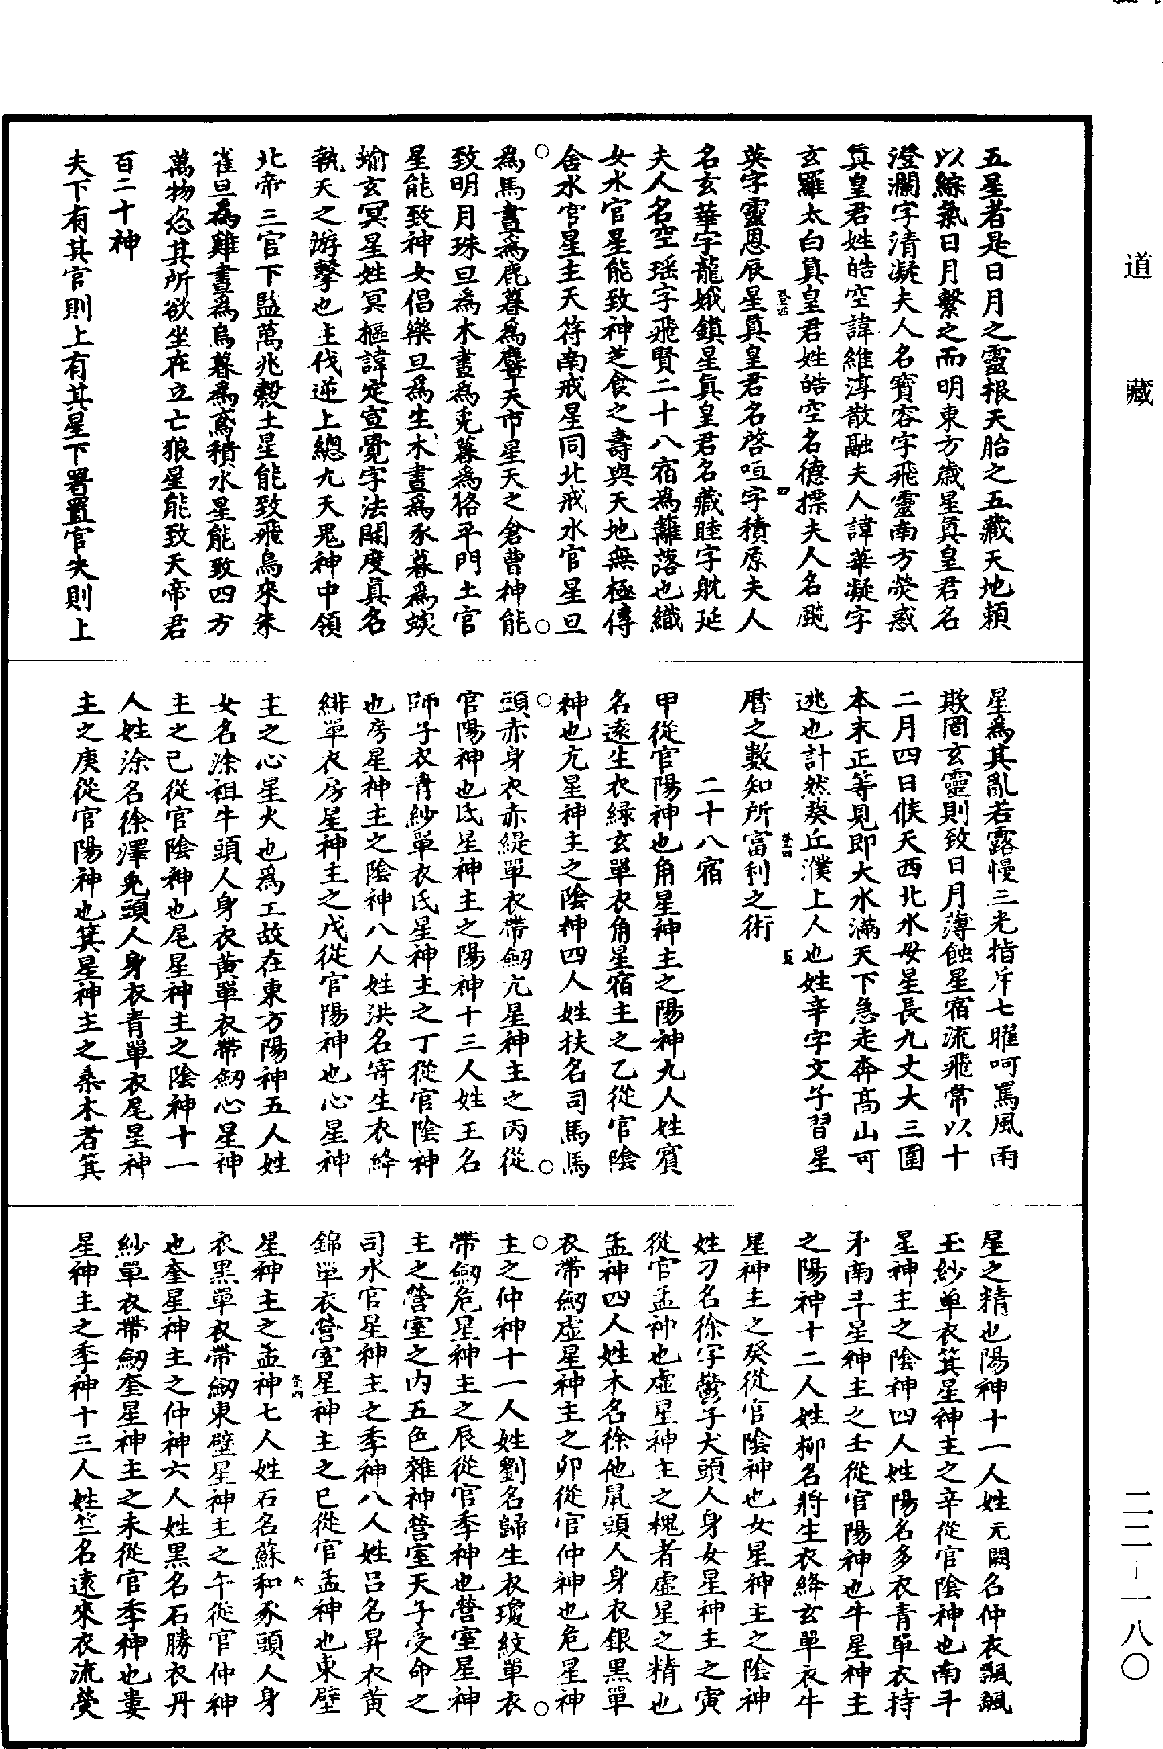 道藏
五星者是日月之靈根天胎之五藏天地賴
以綜氣日月繫之而明東方歲星真皇君名
澄瀾字清凝夫人名寶容字飛靈南方熒惑
真皇君姓皓空諱維淳散融夫人諱華凝字
玄羅太白真皇君姓皓空名德摽夫人名飈
英字靈恩辰星真皇君名啓咺字積原夫人
名玄華字龍娥鎮星真皇君名藏睦字躭延
夫人名空瑶字飛賢二十八宿為蘺落也織
女水官星能致神芝食之壽與天地無極傳
舍水官星主天符南戒星同北戒水官星旦
為馬晝為鹿暮為麞天市星天之倉曹神能
致明月珠旦為木晝為兎暮為狢平門土官
星能致神女倡樂旦為生木晝為豕暮為蝡
蝓玄冥星姓冥樞諱定宣覺字法開度真名
執天之游擊也主伐逆上總九天鬼神中領
北帝三官下監萬兆穀土星能致飛烏來朱
雀旦為雞晝為烏暮為鳶積水星能致四方
萬物恣其所欲坐在立亡狼星能致天帝君
百二十神
夫下有其官則上有其星下署置官失則上
星為其亂若露慢三光指斥七曜呵罵風雨
欺罔玄靈則致日月薄蝕星宿流飛常以十
二月四日候天西北水母星長九丈大三圍
本末正等見即大水滿天下急走奔高山可
逃也計然葵丘濮上人也姓辛字文子習星
曆之數知所富利之術
二十八宿
甲從官陽神也角星神主之陽神九人姓賓
名遠生衣緑玄單衣角星宿主之乙從官陰
神也亢星神主之陰神四人姓扶名司馬馬
頭赤身衣赤緹單衣帶劒亢星神主之丙從
官陽神也氐星神主之陽神十三人姓王名
師子衣青紗單衣氐星神主之丁從官陰神
也房星神主之陰神八人姓洪名寄生衣絳
緋單衣房星神主之戊從官陽神也心星神
主之心星火也為工故在東方陽神五人姓
女名涂祖牛頭人身衣黃單衣帶劒心星神
主之己從官陰神也尾星神主之陰神十一
人姓涂名徐澤兎頭人身衣青單衣尾星神
主之庚從官陽神也箕星神主之桑木者箕
星之精也陽神十一人姓元闕名仲衣飄飆
玉紗單衣箕星神主之辛從官陰神也南斗
星神主之陰神四人姓陽名多衣青單衣持
矛南斗星神主之壬從官陽神也牛星神主
之陽神十二人姓柳名將生衣絳玄單衣牛
星神主之癸從官陰神也女星神主之陰神
姓刁名徐字鬱子犬頭人身女星神主之寅
從官孟神也虛星神主之槐者虛星之精也
孟神四人姓木名徐他鼠頭人身衣銀黑單
衣帶劒虛星神主之卯從官仲神也危星神
主之仲神十一人姓劉名歸生衣瓊紋單衣
帶劒危星神主之辰從官季神也營室星神
主之營室之内五色雜神營室天子受命之
司水官星神主之季神八人姓吕名昇衣黄
錦單衣營室星神主之巳從官孟神也東壁
星神主之孟神七人姓石名蘇和豕頭人身
衣黑單衣帶劒東壁星神主之午從官仲神
也奎星神主之仲神六人姓黑名石勝衣丹
紗單衣帶劒奎星神主之未從官季神也婁
星神主之季神十三人姓竺名遠來衣流熒
二二–一八〇